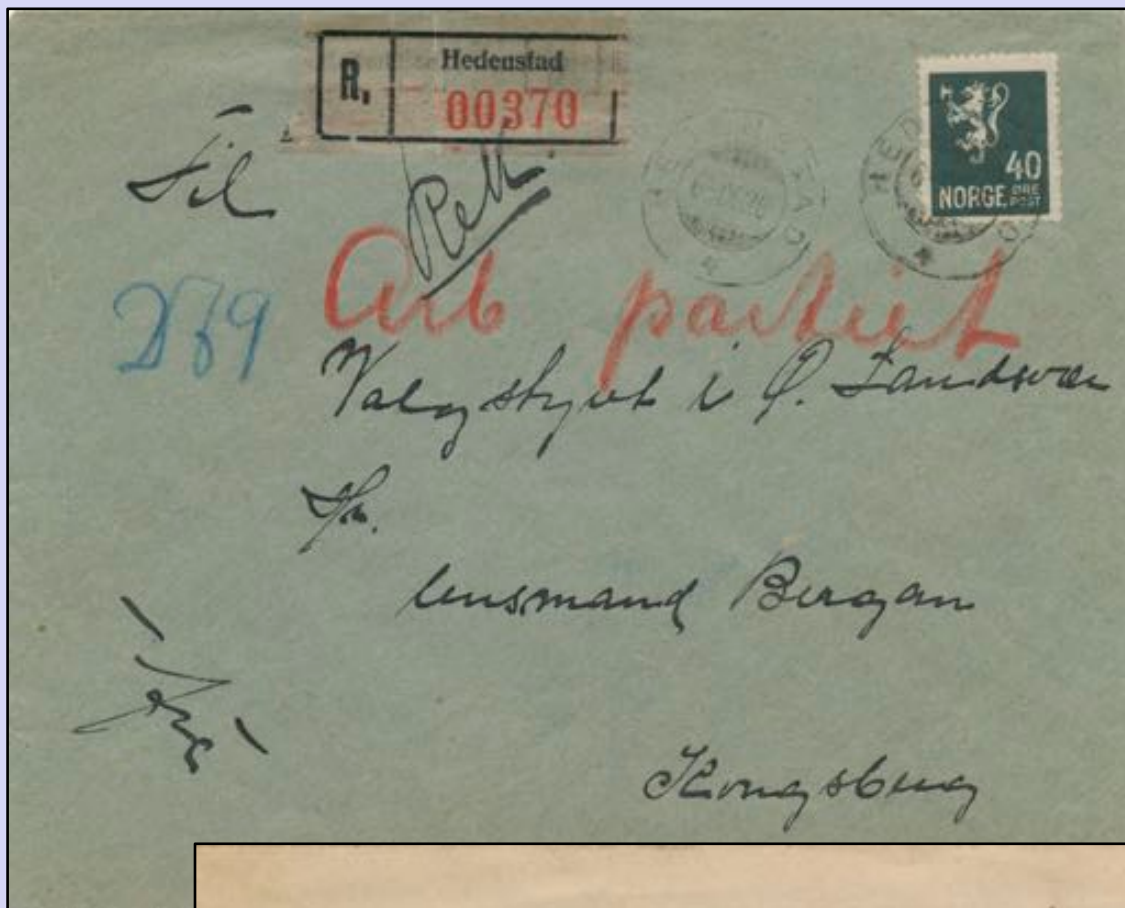 R. Hedenstad
00370
40
NORGE ØRE
POST
Til
Rek.
Arb partiet
Valgstyret i Ø. Sandsvær
Hr.
lensmand Bergan
Kongsberg